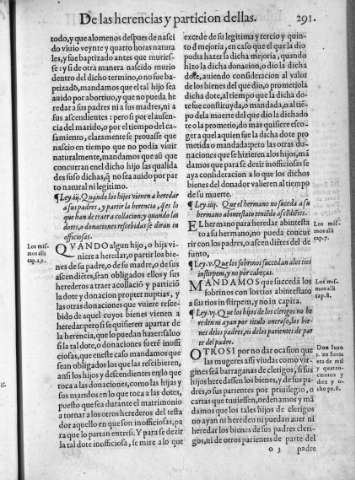 De las herencias y particion dellas. 291.
todo, y que alomenos despues de nasci
do viuio veynte y quatro horas natura
les, y fue baptizado antes que muries-
se: y si de otra manera nascido murio
dentro del dicho termino, o no fue ba-
ptizado, mandamos que el tal hijo sea
auido por abortiuo, y que no pueda he
redar a sus padres ni a sus madres, ni a
sus ascendientes: pero si por el ausen-
cia del marido, o por el tiempo del ca-
samiento, claramente se prouasse que
nascio en tiempo que no podia viuir
naturalmente, mandamos que aũ que
concurran enel dicho hijo las qualida
des suso dichas, q̃ no sea auido por par
to natural ni legitimo.
¶ Ley iij. Quando los hijos vienen a heredar
a sus padres, y partir la herencia, que es lo
que han de traer a collacion; y quando las
dotes, o donationes rescebidas se diran in
officiosas.
Los mis-
mos alli
cap.29.
QVANDO algun hijo, o hija vi-
niere a heredar, o partir los bie-
nes de su padre, o de su madre, o de sus
ascendiẽtes, sean obligados ellos y sus
herederos a traer a collació y partició
la dote y donacion propter nuptias, y
las otras donaciones que vuiere resce-
bido de aquel cuyos bienes vienen a
heredar: pero si se quisieren apartar de
la herencia, que lo puedan hazer: saluo
si la tal dote, o donaciones fuerẽ inoffi
ciosas, que eneste caso mandamos que
sean obligados los que las rescibieron,
ansi los hijos y descendientes en lo que
toca a las donaciones, como las hijas y
sus maridos en lo que toca a las dotes,
puesto que sea durante el matrimonio
a tornar a los otros herederos del testa
dor aquello en que son inofficiosas, pa
ra que lo partan entresi. Y para se dezir
la tal dote inofficiosa, se mire a lo que
excede de su legitima y tercio y quin-
to d mejoria, en caso que el que la dio
podia hazer la dicha mejoria, quando
hizo la dicha donation, o dio la dicha
dote, auiendo consideracion al valor
de los bienes del que dio, o prometio la
dicha dote, al tiempo que la dicha do-
te fue constituyda, o mandada, o al tiẽ-
po dela muerte del que dio la dicha do
te o la prometio, do mas quisiere esco-
ger aquel a quien fue la dicha dote pro
metida o mandada: pero las otras do-
naciones que se hizieren a los hijos, mã
damos que para se dezir inofficiosas se
aya consideracion a lo que los dichos
bienes del donador valieren al tiempo
de su muerte.
¶ Ley iiij. Que el hermano no succeda a su
hermano abintestato teniẽdo ascẽdiẽtes.
Los mis-
mos alli
cap.7.
EL hermano para heredar abintesta
to a su hermano, no pueda concur
rir con los padres, o ascendiẽtes del de
funto,
¶ Ley .v. Que los sobrinos succedan a los tios
instirpem, y no por cabeças.
Los mis-
mos alli
cap.8.
MANDAMOS que succeda los
sobrinos con los tios abintestato
a sus tios in stirpem, y no in capita.
¶ Ley .vj. Que los hijos de los clerigos no he
reden a ni ayan por titulo oneroso, los bie-
nes delos padres, ni deles parientes de par
te del padre.
OTROSI por no dar ocasion que
las mugeres assi viudas como vir-
gines sean barraganas de clerigos, si sus
hijos heredassen los bienes, y de sus pa-
dres, o sus parientes por priuilegio, o
cartas que tuuiessen, ordenamos y mã
damos que los tales hijos de clerigos
no ayan ni hereden ni puedan auer ni
heredar los bienes de sus padres cleri-
gos, ni de otros parientes de parte del
O 3 padre